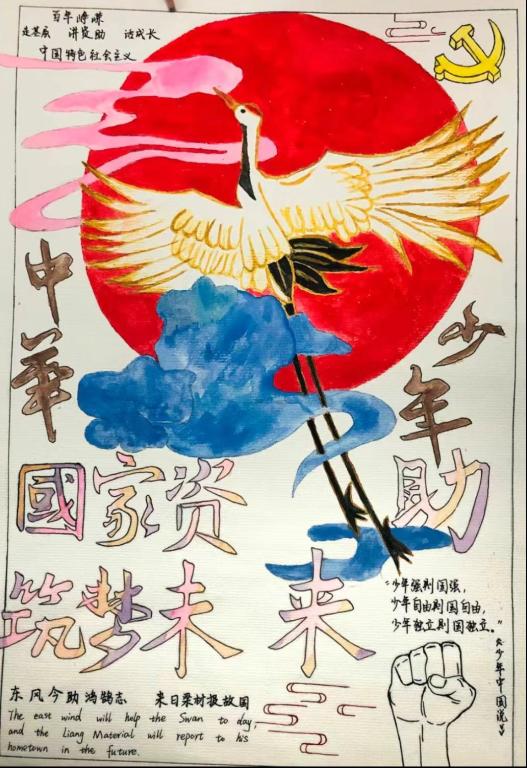 百年峥嵘
走基层 讲资助 话成长
中国特色社会主义
中華
少年
國家资助
筑梦未来
"少年强则国强，
少年自由则国自由，
少年独立则国独立。"
《少年中国说》
东风今助鸿鹄志 来日梁材报故国
The east wind will help the Swan to day,
and the Liang Material will report to his
hometown in the future.